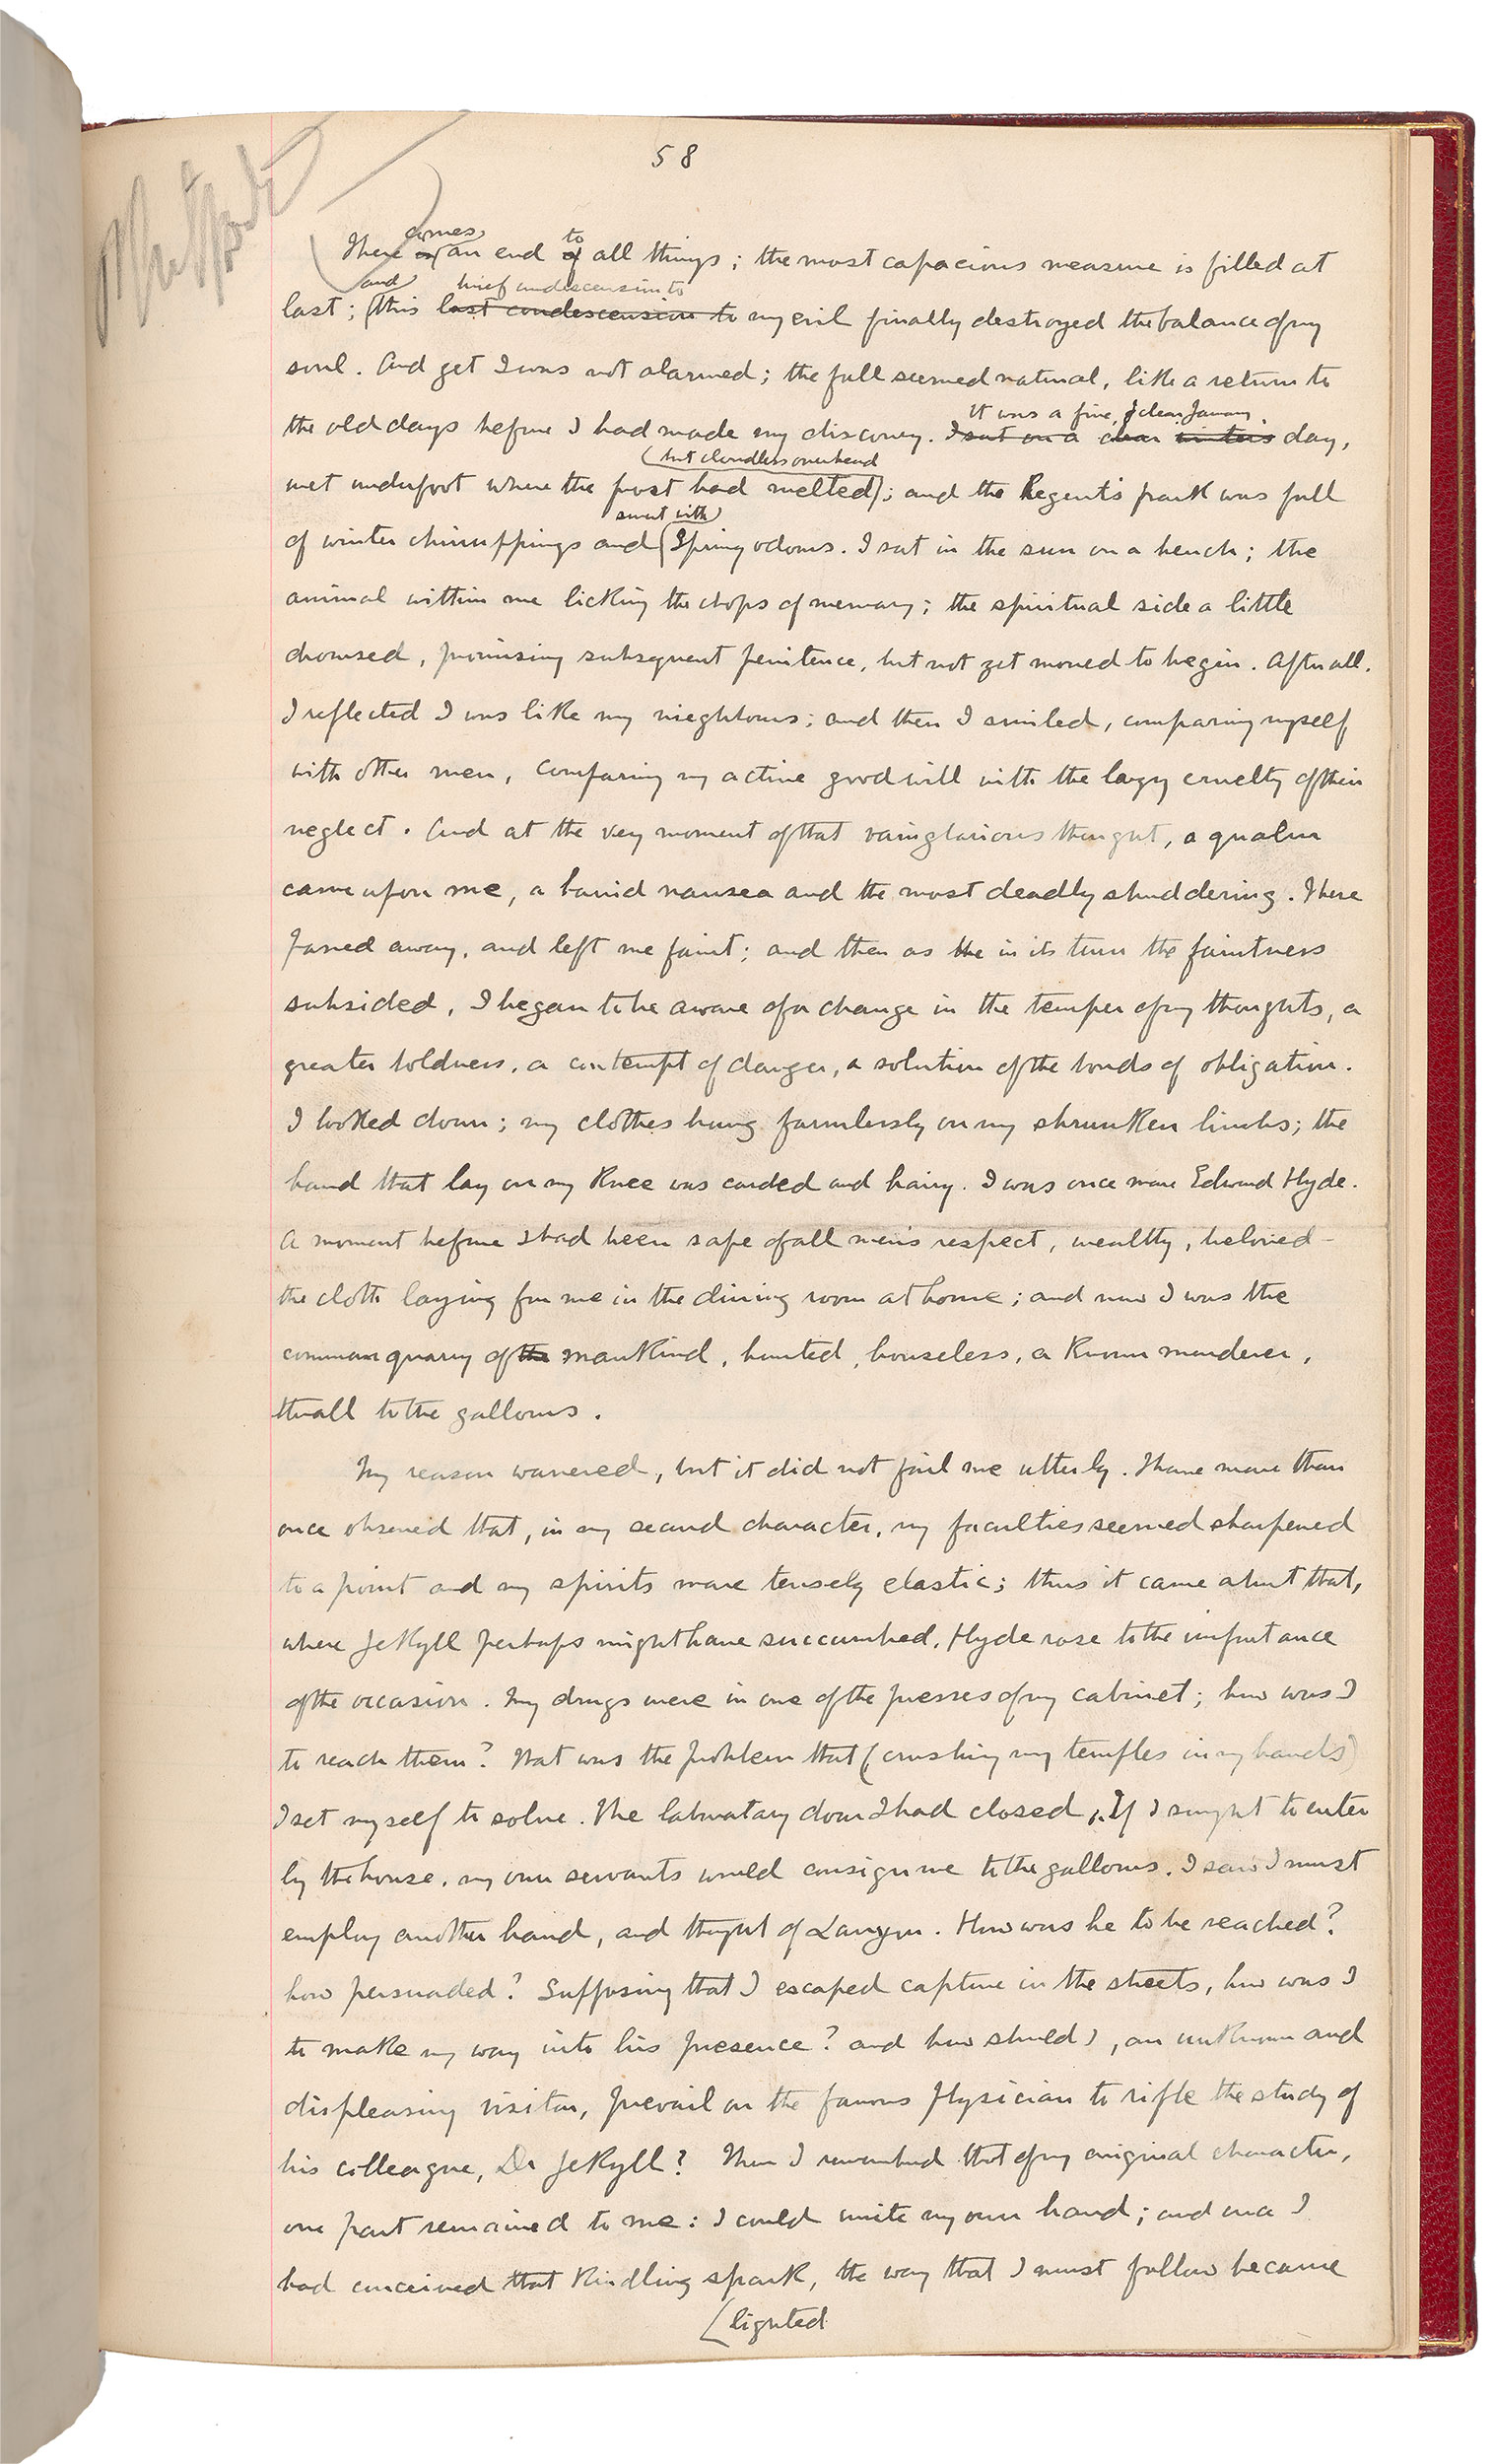 58
comes to
There is an end of all things; the most capacious measure is filled at
and brief condescension to
last; this last condescension to my evil finally destroyed the balance of my
soul. And yet I was not alarmed; the fall seemed natural, like a return to
It was a fine, clear, January
the old days before I had made my discovery. I sat on a clear winter's day,
(but cloudless overhead
wet underfoot where the frost had melted; and the Regent's park was full
sweet with
of winter chirruppings and Spring odours. I sat in the sun on a bench; the
animal within me licking the chops of memory; the spiritual side a little
drowsed, promising subsequent penitence, but not yet moved to begin. After all,
I reflected I was like my nieghbours; and then I smiled, comparing myself
with other men, comparing my active goodwill with the lazy cruelty of their
neglect. And at the very moment of that vainglorious thought, a qualm
came upon me, a horrid nausea and the most deadly shuddering. These
passed away, and left me faint; and then as the in its turn the faintness
subsided, I began to be aware of a change in the temper of my thoughts, a
greater boldness, a contempt of danger, a solution of the bonds of obligation.
I looked down; my clothes hung formlessly on my shrunken limbs; the
hand that lay on my knee was corded and hairy. I was once more Edward Hyde.
A moment before I had been safe of all men's respect, wealthy, beloved –
the cloth laying for me in the dining room at home; and now I was the
common quarry of the mankind, hunted, houseless, a known murderer,
thrall to the gallows.
My reason wavered, but it did not fail me utterly. I have more than
once observed that, in my second character, my faculties seemed sharpened
to a point and my spirits more tensely elastic; thus it came about that,
where Jekyll perhaps might have succumbed, Hyde rose to the importance
of the occasion. My drugs were in one of the presses of my cabinet; how was I
to reach them? That was the problem that (crushing my temples in my hands)
I set myself to solve. The laboratory door I had closed. If I sought to enter
by the house, my own servants would consign me to the gallows. I saw I must
employ another hand, and thought of Lanyon. How was he to be reached?
how persuaded? Supposing that I escaped capture in the streets, how was I
to make my way into his presence? and how should I, an unknown and
displeasing visitor, prevail on the famous physician to rifle the study of
his colleague, Dr Jekyll? Then I remembered that of my original character,
one part remained to me: I could write my own hand; and once I
had conceived that kindling spark, the way that I must follow became
(lighted